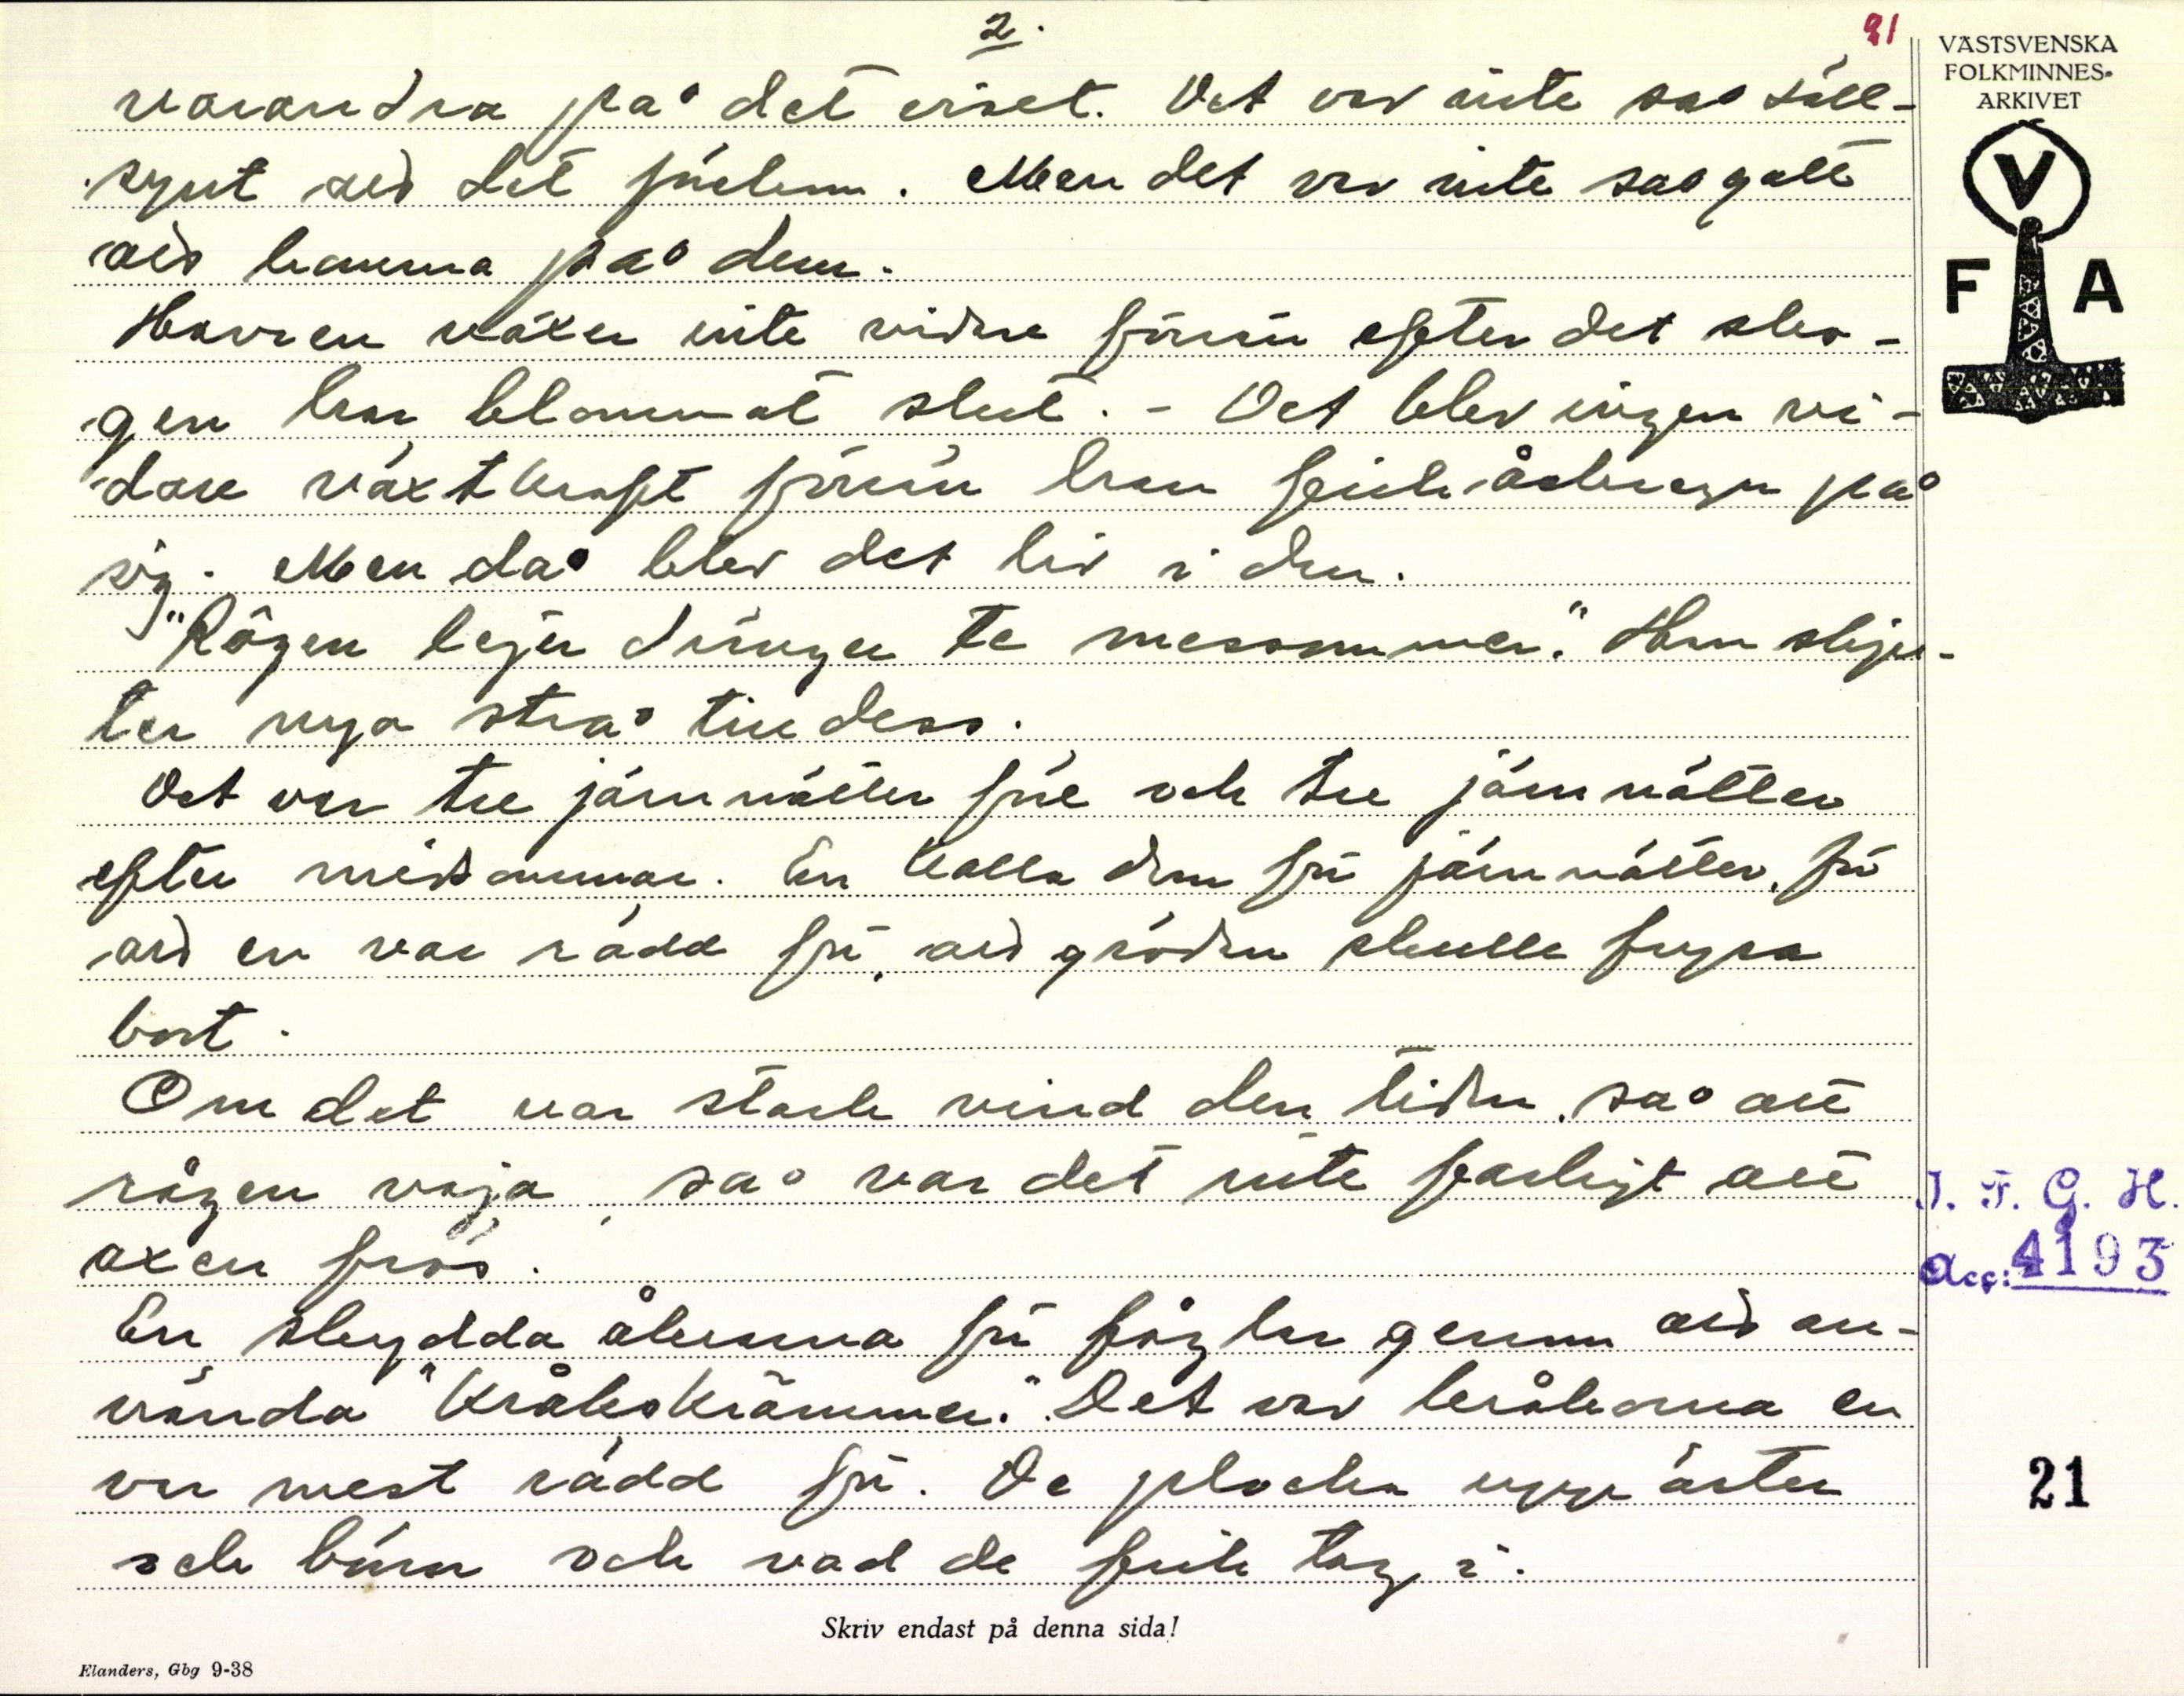 2.
21
VÄSTSVENSKA
FOLKMINNES-
ARKIVET
V
F A
varandra på det viset. Det var inte så säll-
synt ad det föekom. Men det var inte så gått
ad komma på dem.
Havren växer inte vidre förrän efter det sko-
gen har blommat slut. - Det blev ingen vi-
dare växtkraft förrän han feck åskregn på
sig. Men då blev det liv i den.
"Rôgen lejer dränger te messommer." Han skju-
ter nya strå till dess.
Det var tre järnnätter före och tre järnnätter
efter midsommar. En kalla dem för järnnätter, för
ad en var rädd för, ad gröden skulle frysa
bort.
Om det var stark vind den tiden, så att
rågen vaja, så var det inte farligt att
axen frös.
En skydda åkrarna för fåglar genom ad an-
vända "Kråkskrämmer." Det var kråkorna en
var mest rädd för. De plocka upp ärter
och korn och vad de feck tag i.
Skriv endast på denna sida!
Elanders, Gbg 9-38
I. F. G. H.
Acc: 4193
21